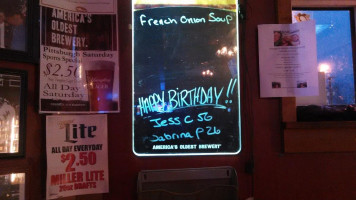 AMERICA'S
OLDEST
BREWERY.
Pittsburgh Saturday
Sports Special
$2.50
All Day
Saturday
Lite
ALL DAY EVERYDAY
$2.50
MILLER LITE
DRAFTS
French Onion Soup
HAPPY BIRTHDAY!!
Jess C 56
Sabrina P 26
AMERICA'S OLDEST BREWERY